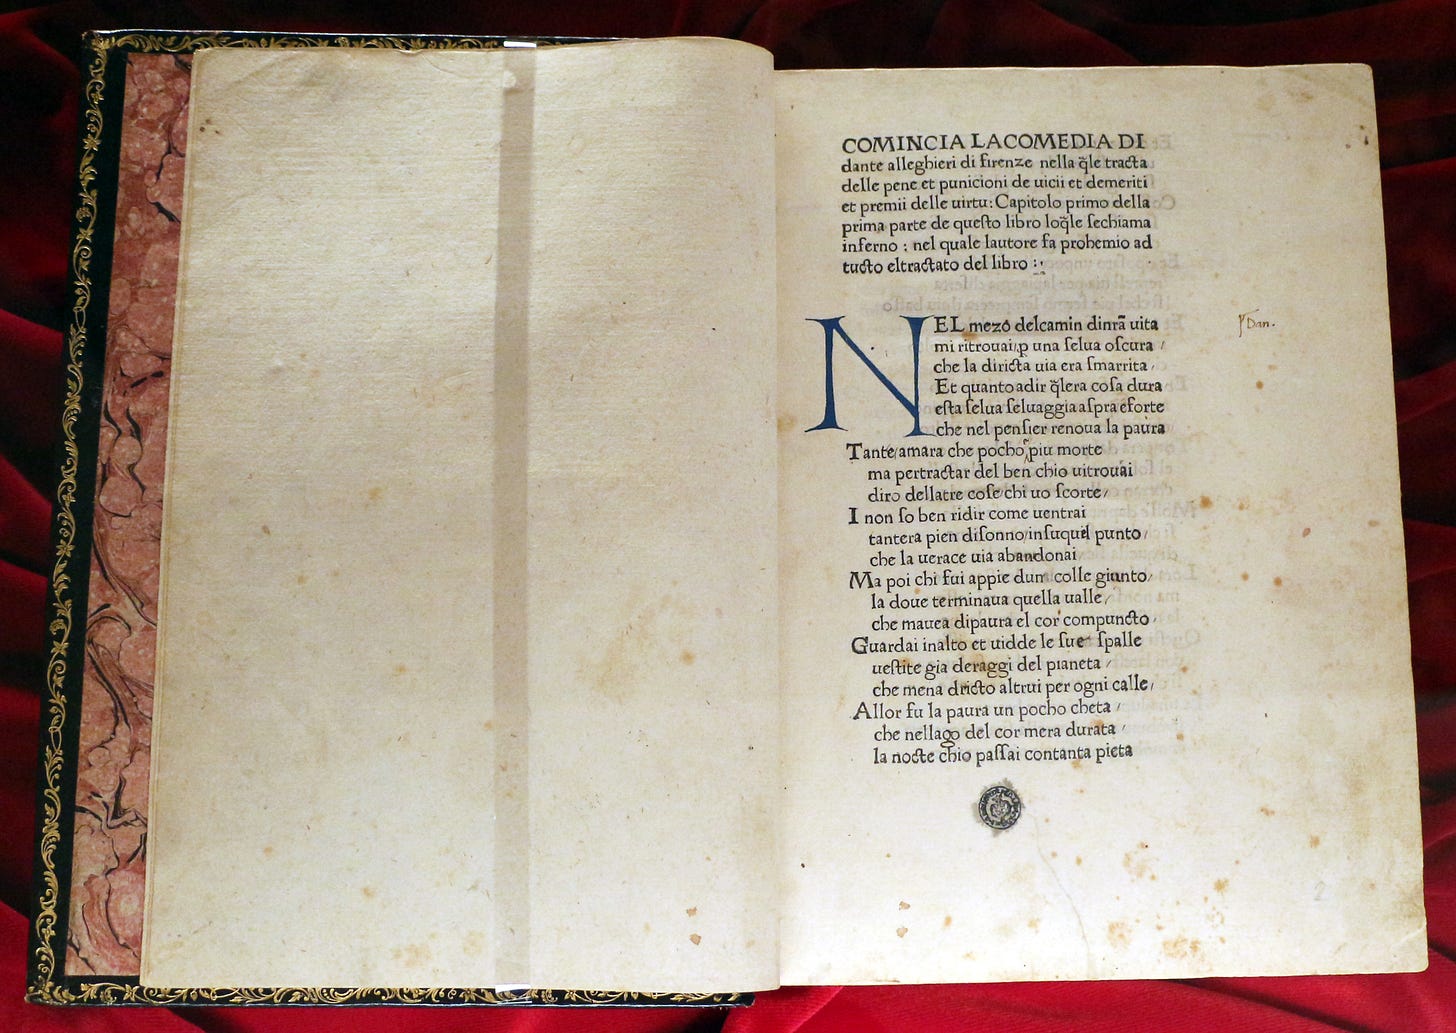 COMINCIA LACOMEDIA DI
dante alleghieri di firenze nella q̃le tracta
delle pene et punicioni de uicii et demeriti
et premii delle uirtu: Capitolo primo della
prima parte de queſto libro loq̃le ſechiama
inferno : nel quale lautore fa prohemio ad
tucto eltractato del libro :·,
NEL mezo delcamin dinrã uita
mi ritrouai p una ſelua oſcura /
che la diricta uia era ſmarrita /
Et quanto adir q̃lera coſa dura
eſta ſelua ſeluaggia aſpra eforte
che nel penſier renoua la paura
Tante amara che pocho piu morte
ma pertractar del ben chio uitrouai
diro dellatre coſe chi uo ſcorte /
I non ſo ben ridir come uentrai
tantera pien diſonno / inſuquel punto /
che la uerace uia abandonai
Ma poi chi fui appie dum colle giunto /
la doue terminaua quella ualle /
che mauea dipaura el cor compuncto /
Guardai inalto et uidde le ſue ſpalle
ueſtite gia deraggi del pianeta /
che mena dricto altrui per ogni calle /
Allor fu la paura un pocho cheta /
che nellago del cor mera durata /
la nocte chio paſſai contanta pieta
Dan.
2